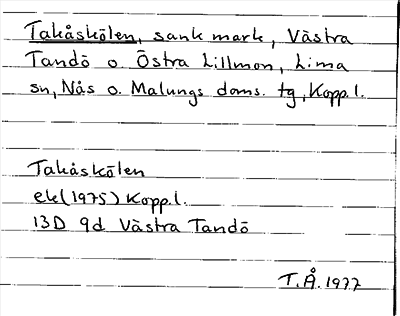 Takåskölen, sank mark, Västra
Tandö o. Östra Lillmon, Lima
sn, Nås o. Malungs doms. tg, Kopp. l.
Takåskölen
ek (1975) Kopp. l.
13D 9d Västra Tandö
T.Å. 1977